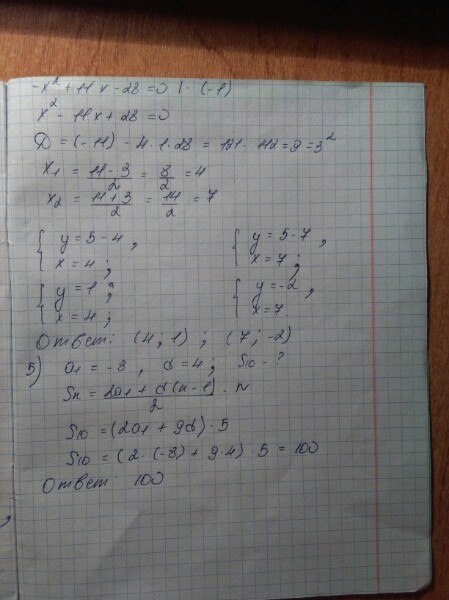 -x² + 11x - 28 = 0 | · (-1)
x² - 11x + 28 = 0
D = (-11) - 4·1·28 = 121 - 112 = 9 = 3²
x₁ = (11 - 3)/2 = 8/2 = 4
x₂ = (11 + 3)/2 = 14/2 = 7
{ y = 5 - 4, { y = 5 - 7,
x = 4; x = 7;
{ y = 1; { y = -2,
x = 4; x = 7.
Ответ: (4; 1); (7; -2)
5) a₁ = -8, d = 4; S₁₀ - ?
Sn = (2a₁ + d(n-1))/2 · n
S₁₀ = (2a₁ + 9d) · 5
S₁₀ = (2 · (-8) + 9·4) · 5 = 100
Ответ: 100